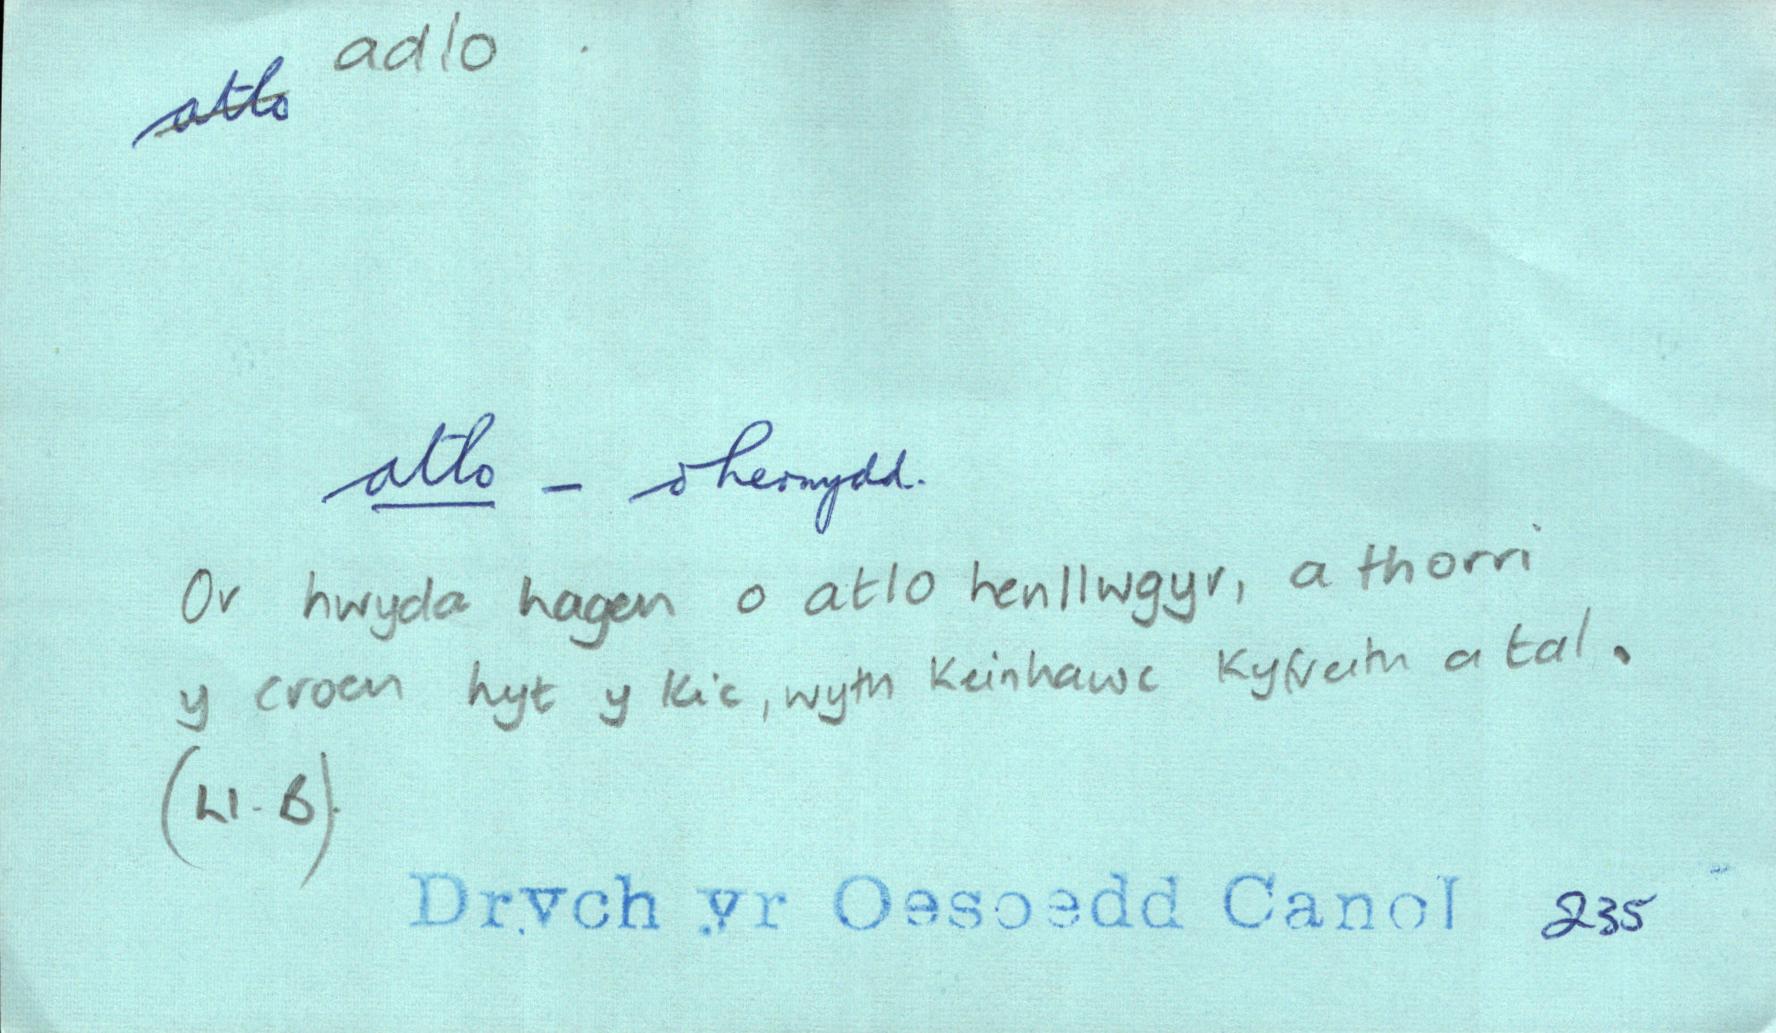 adlo
atlo
atlo - oherwydd.
Or hwyda hagen o atlo henllwgyr, a thorri
y croen hyt y kic, wyth keinhawc kyfreith a tal.
(Ll. B).
Drych yr Oesoedd Canol 235